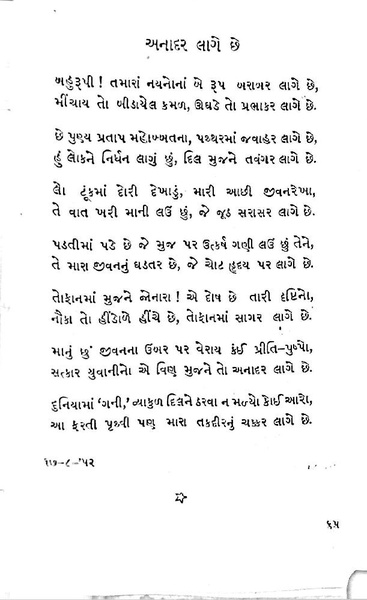 અનાદર લાગે છે
બહુરૂપી ! તમારાં નયનોનાં બે રૂપ બરાબર લાગે છે,
મીંચાય તો બીડાયેલ કમળ, ઊઘડે તો પ્રભાકર લાગે છે.
છે પુણ્ય પ્રતાપ મહોબ્બતના, પથ્થરમાં જવાહર લાગે છે;
હું લોકને નિર્ધન લાગું છું, દિલ મુજને તવંગર લાગે છે.
લો ટૂંકમાં દોરી દેખાડું, મારી આછી જીવનરેખા,
તે વાત ખરી માની લઉં છું, જે જૂઠ સરાસર લાગે છે.
પડતીમાં પડે છે જે મુજ પર ઉત્કર્ષ ગણી લઉં છું તેને,
તે મારા જીવનનું ઘડતર છે, જે ચોટ હૃદય પર લાગે છે.
તોફાનમાં મુજને જોનારા ! એ દોષ છે તારી દૃષ્ટિનો,
નૌકા તો હીંડોળે હીંચે છે, તોફાનમાં સાગર લાગે છે.
માનું છું જીવનના ઉંબર પર વેરાય કંઈ પ્રીતિ-પુષ્પો,
સત્કાર યુવાનીનો એ વિણ મુજને તો અનાદર લાગે છે.
દુનિયામાં ‘ગની,’ વ્યાકુળ દિલને ઠરવા ન મળ્યો કોઈ આરો,
આ ફરતી પૃથ્વી પણ મારા તકદીરનું ચક્કર લાગે છે.
૧૭-૮-’૫૨
૬૫